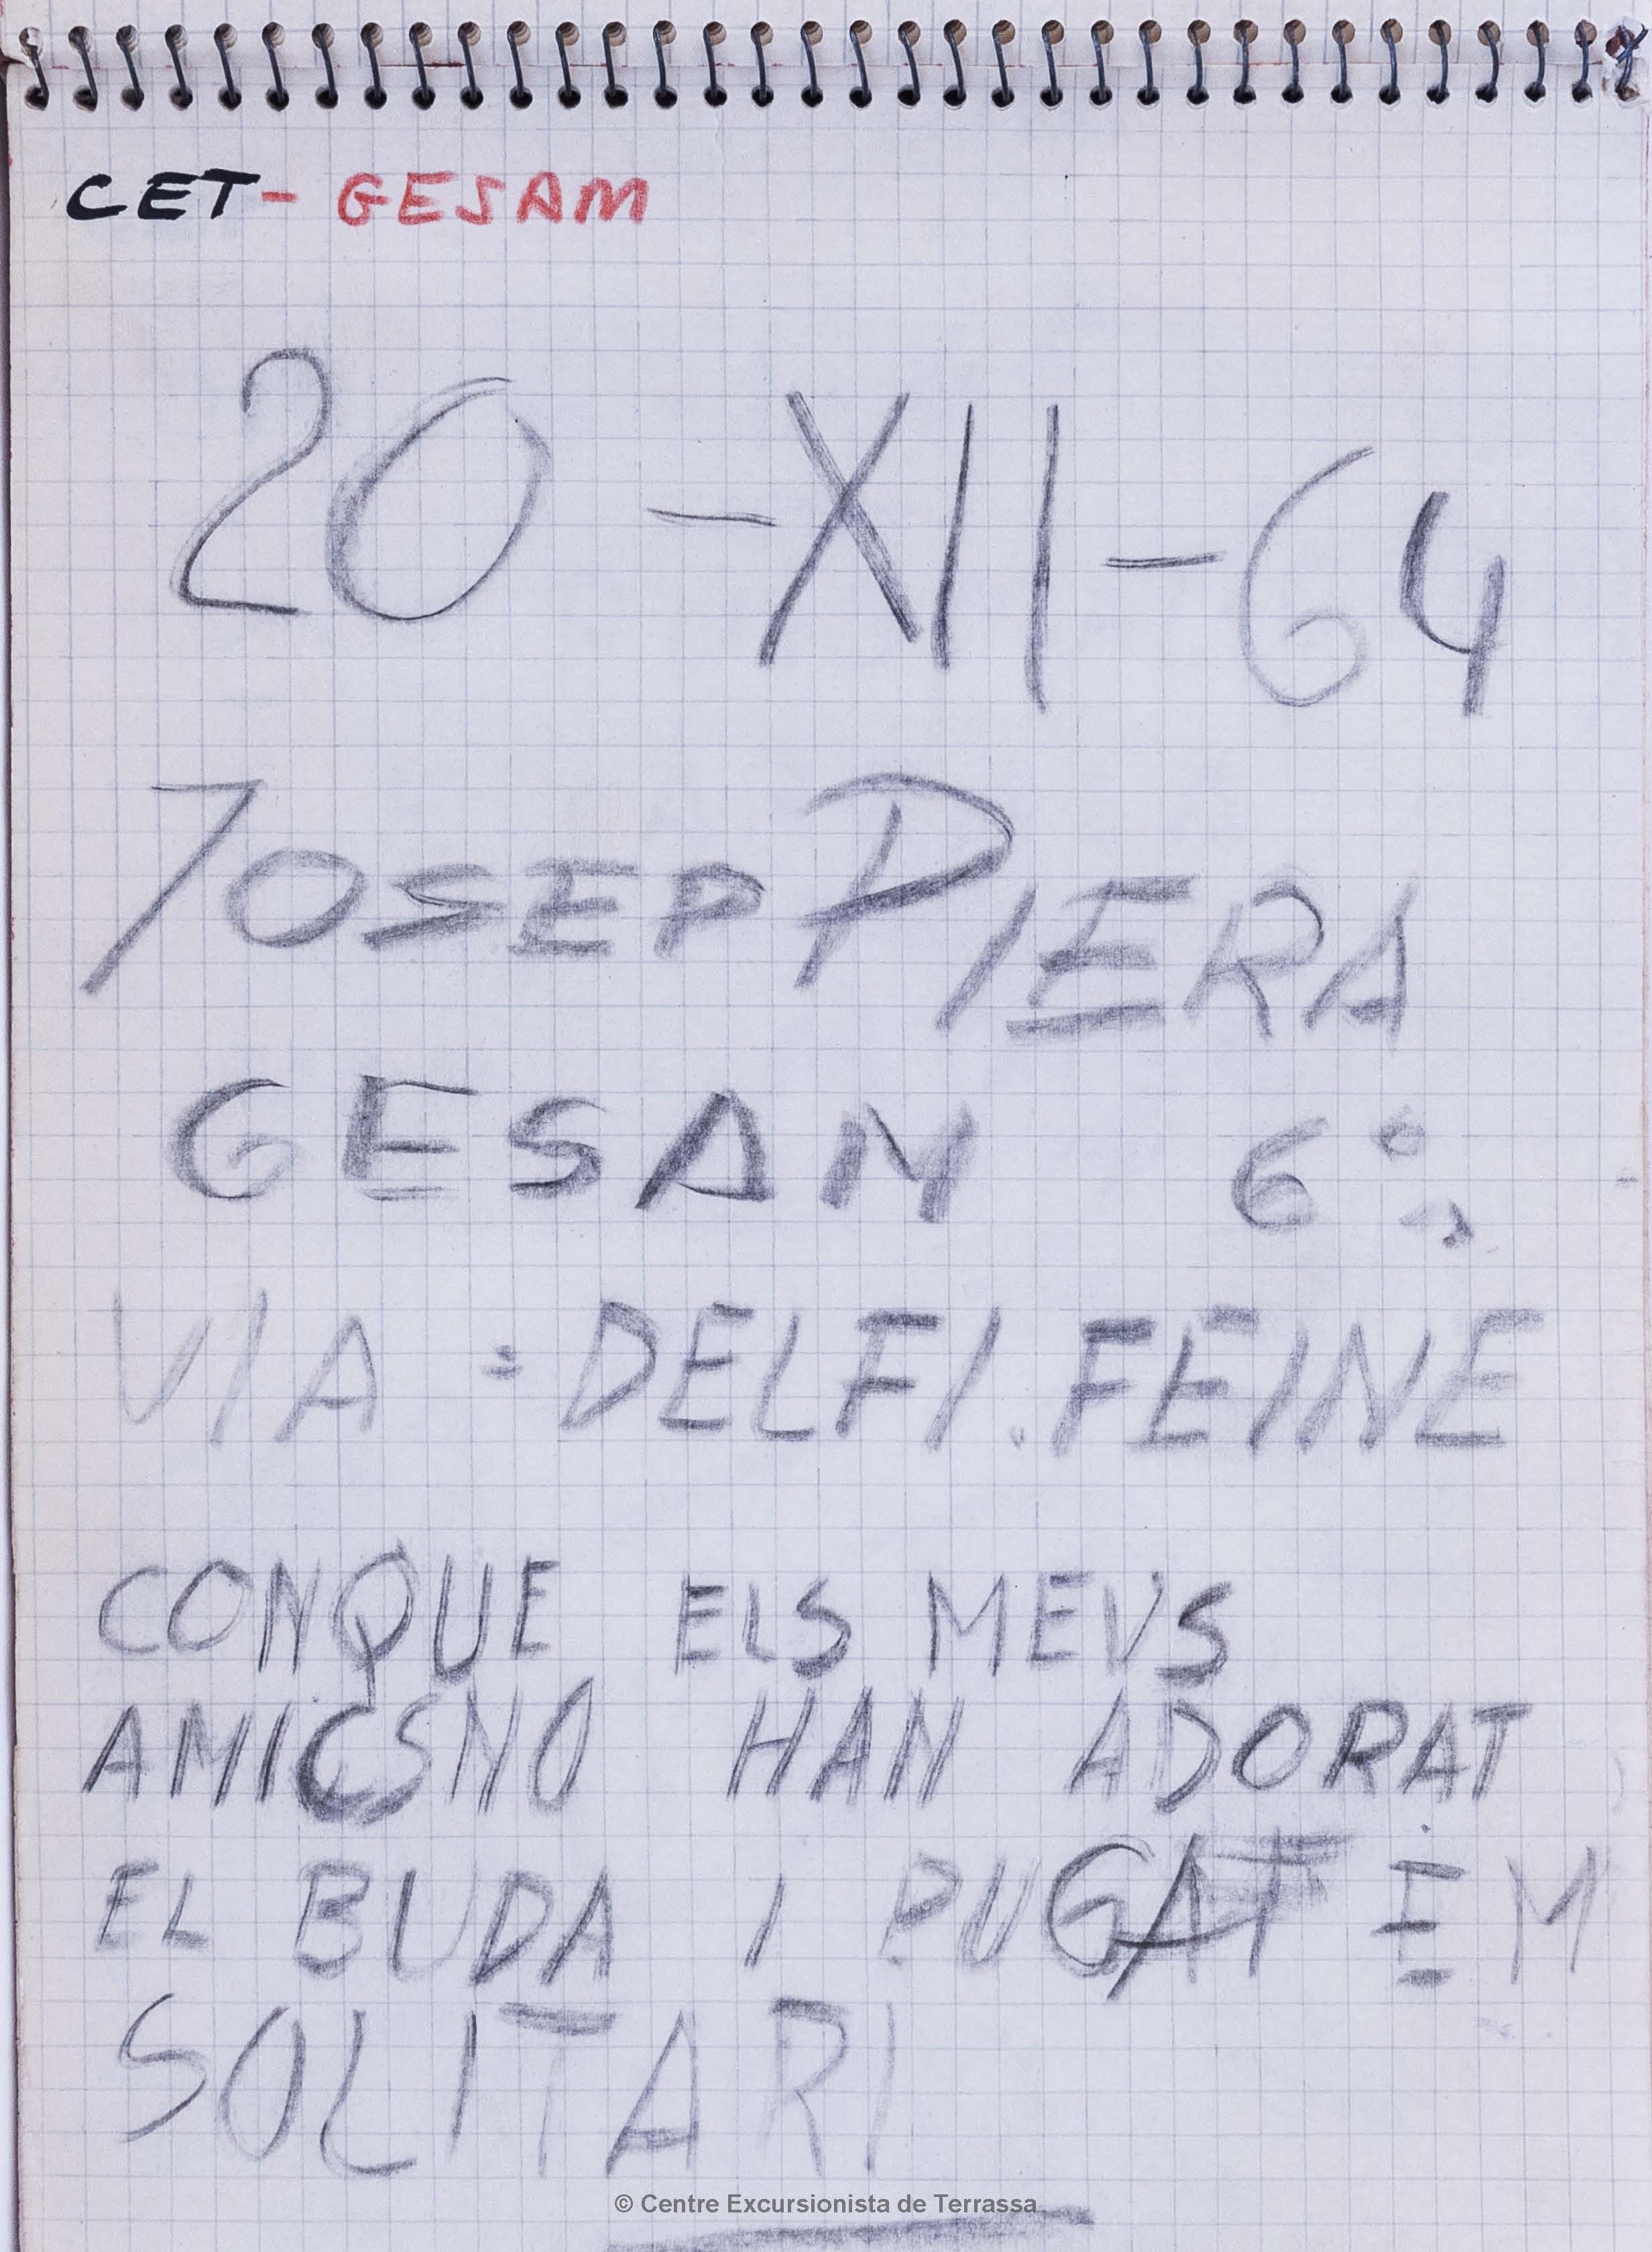 CET - GESAM
20 - XII - 64
JOSEP PIERA
GESAM 6º
VIA = DELFI. FEINE
CONQUE ELS MEUS
AMICS NO HAN ADORAT
EL BUDA I PUGAT EM
SOLITARI
© Centre Excursionista de Terrassa